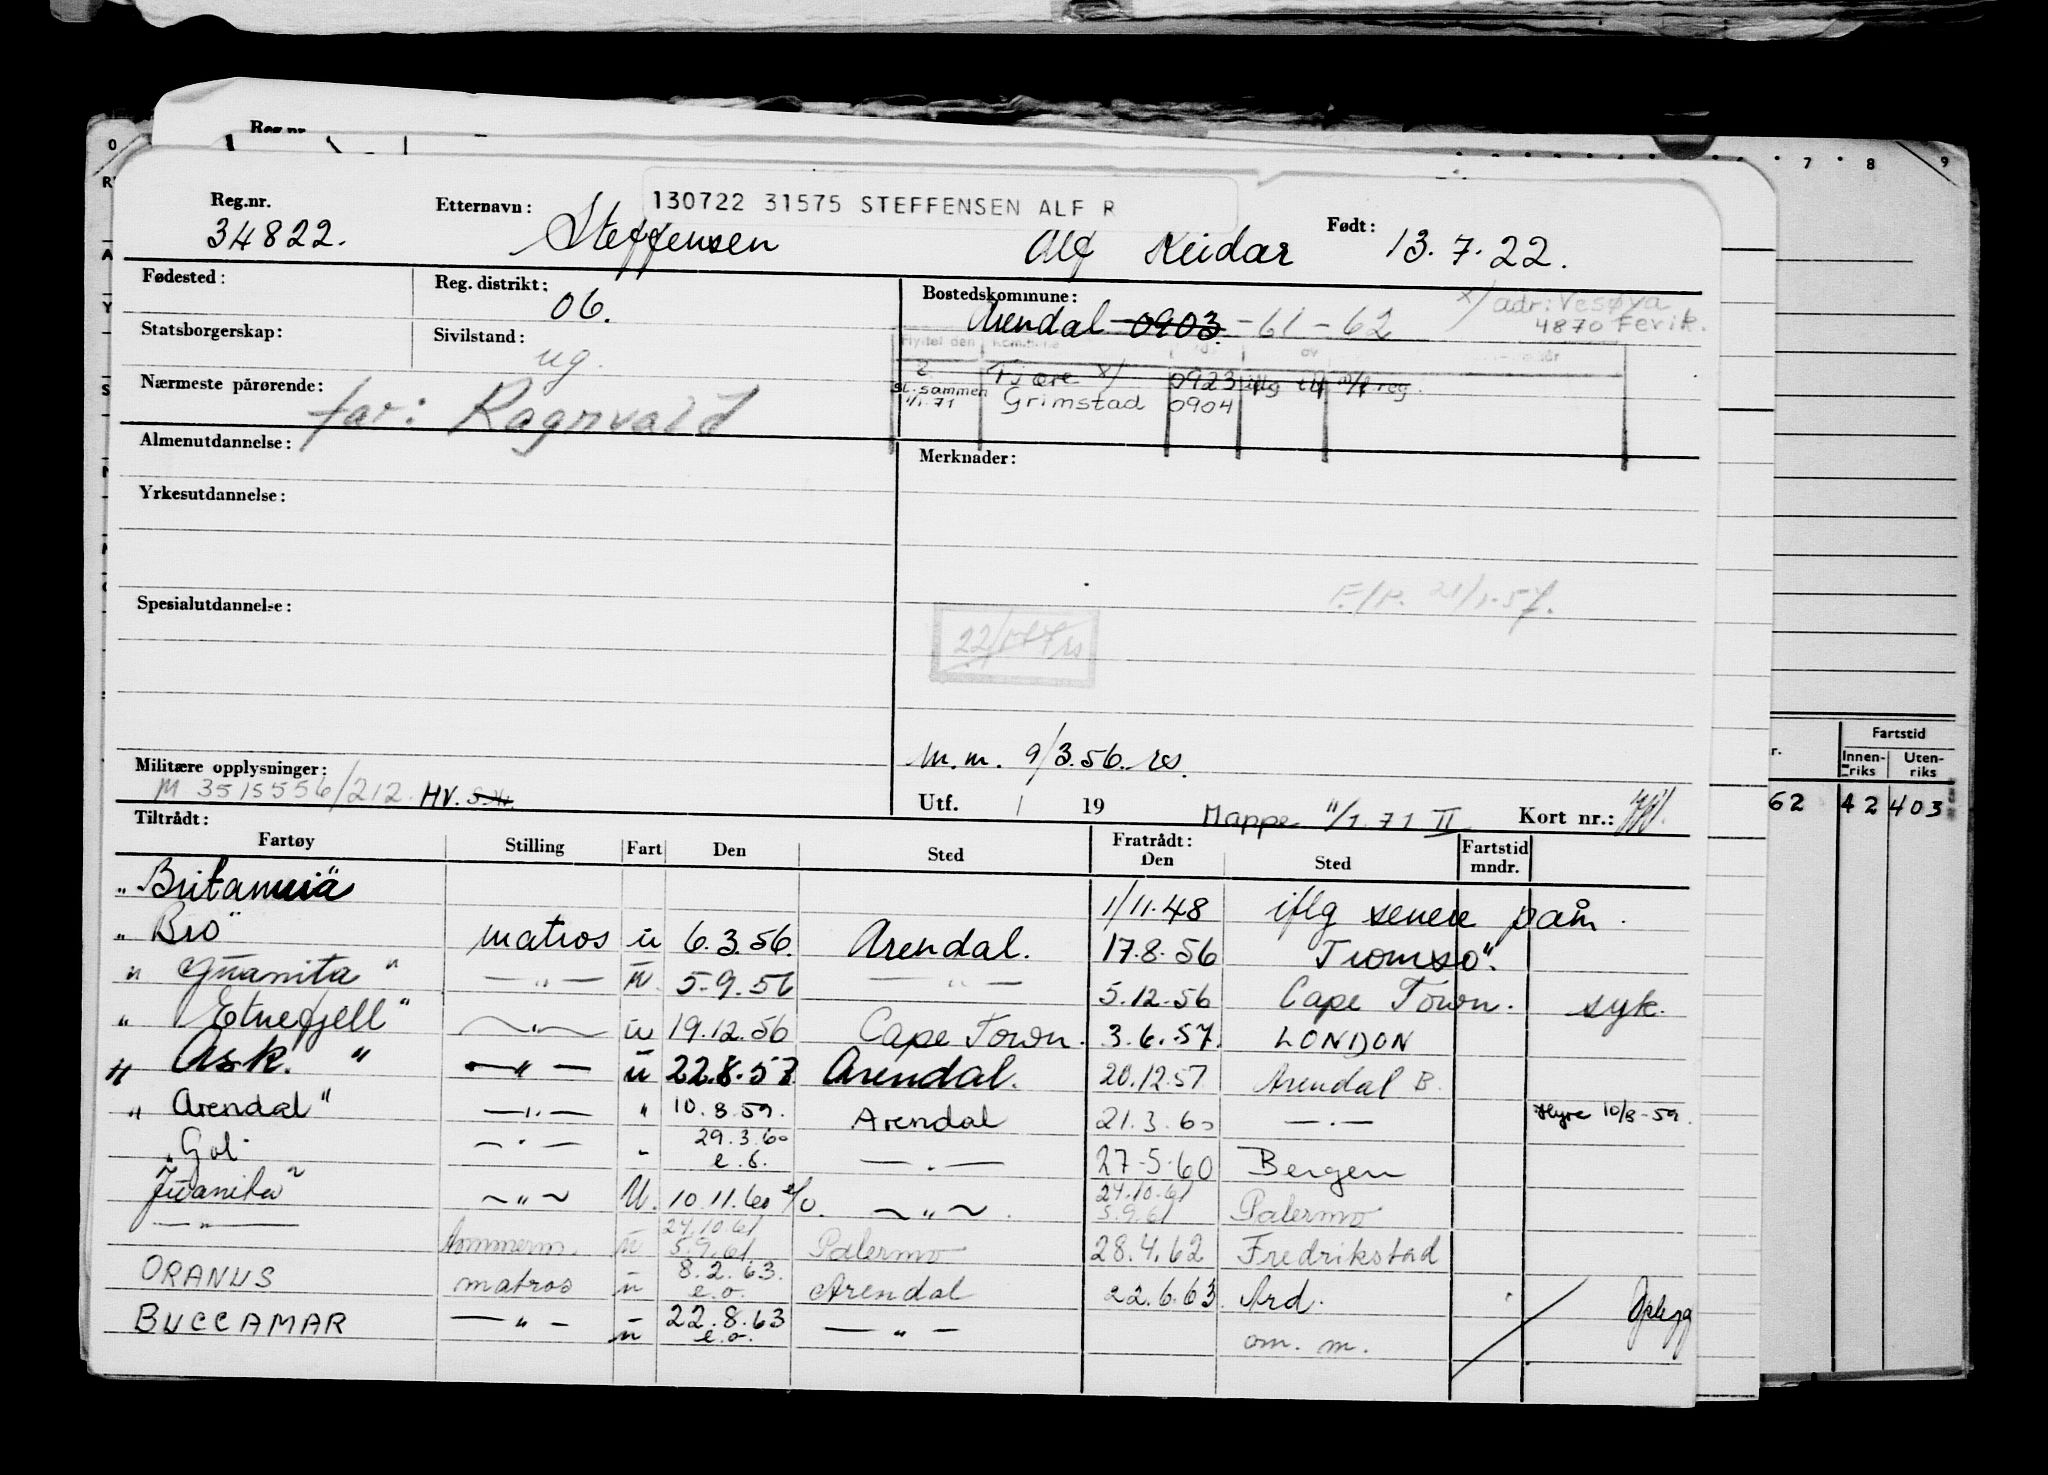 0 7 8 9
Reg.nr.
130722 31575 STEFFENSEN ALF R
Reg.nr. 34822. Etternavn: Steffensen Alf Reidar Født: 13.7.22.
Fødested: Reg. distrikt: 06. Bostedskommune: Arendal 0903 - 61 - 62 x/ adr: Vesøya
4870 Fevik.
Statsborgerskap: Sivilstand: ug.
Flyttet den Kommune av
Tjøre x/ 0923 iflg
Nærmeste pårørende: far: Ragnvald
sl. sammen 1/1.71 Grimstad 0904
Almenutdannelse: Merknader:
Yrkesutdannelse:
F./R. 21/1.57.
Spesialutdannelse:
M.m. 9/3.56. rs.
Militære opplysninger: M 3515556/212. HV.
Utf. / 19 Mappe 11/1.71 II Kort nr.:
Tiltrådt: Fratrådt: Fartstid
Fartøy Stilling Fart Den Sted Den Sted mndr.
"Britannia" 1/11.48 iflg senere påm.
"Bro" matros u 6.3.56. Arendal. 17.8.56 "Tromsø".
"Juanita" — " — u. 5.9.56 — " — 5.12.56 Cape Town. syk.
"Etnefjell" — " — u 19.12.56 Cape Town. 3.6.57. LONDON
"Ask." — " — u 22.8.57 Arendal. 20.12.57 Arendal B.
"Arendal" — " — " 10.8.59. Arendal 21.3.60 — " — Hyre 10/8-59.
"Gol" — " — " 29.3.60 e.o. — " — 27-5-60 Bergen
Juanita" — " — U. 10.11.60 e/o. — " — . 24.10.61 5.9.61 Palermo
— " — tømmerm. u 24.10.61 5.9.61 Palermo 28.4.62 Fredrikstad
ORANUS matros u 8.2.63. e.o. Arendal 22.6.63 Ard.
BUCCAMAR — " — u 22.8.63 e.o. — " — om. m.
Fartstid
Innen-riks Uten-riks
62 42 403